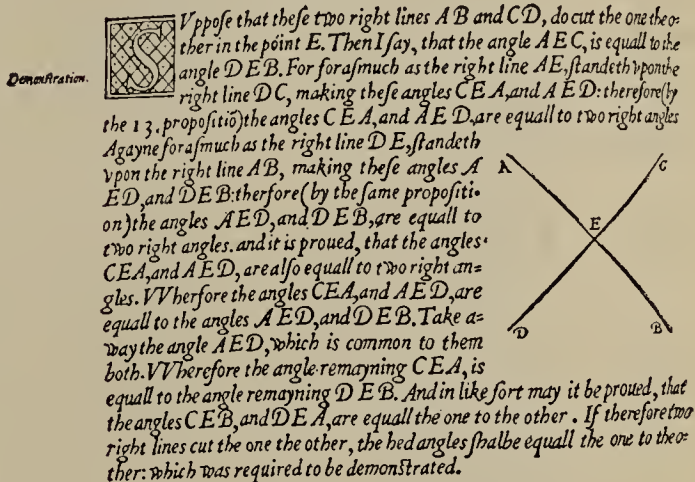 Demonſtration.
SVppoſe that theſe two right lines A B and CD, do cut the one theo=
ther in the point E. Then I ſay, that the angle A E C, is equall to the
angle D E B. For foraſmuch as the right line AE, ſtandeth vpon the
right line D C, making theſe angles C E A, and A E D: therefore (by
the 13. propoſitiō) the angles C E A, and A E D, are equall to two right angles
Agayne foraſmuch as the right line D E, ſtandeth
vpon the right line AB, making theſe angles A
ED, and D E B: therfore (by the ſame propoſiti=
on) the angles A E D, and D E B, are equall to
two right angles. and it is proued, that the angles
CEA, and A E D, are alſo equall to two right an=
gles. VVherfore the angles CEA, and A E D, are
equall to the angles A E D, and D E B. Take a=
way the angle A E D, which is common to them
both. VVherefore the angle remayning C E A, is
equall to the angle remayning D E B. And in like ſort may it be proued, that
the angles C E B, and D E A, are equall the one to the other . If therefore two
right lines cut the one the other, the hed angles ſhalbe equall the one to theo=
ther: which was required to be demonſtrated.
A
C
E
D
B